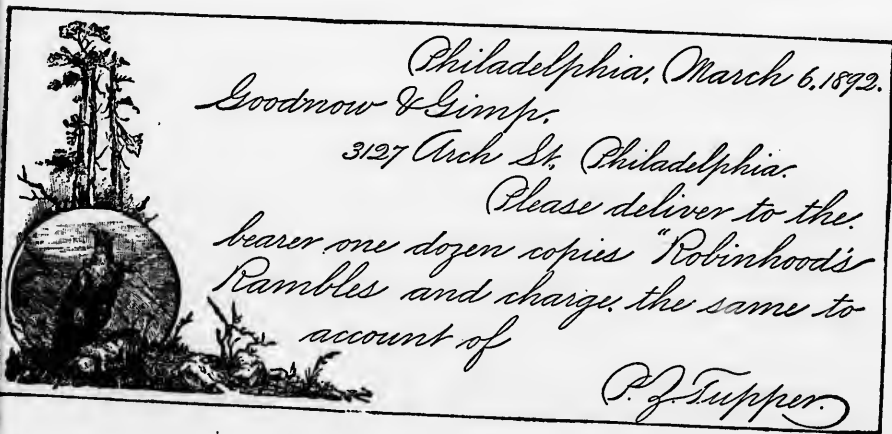 Philadelphia, March 6, 1892.
Goodnow & Gimp,
3127 Arch St, Philadelphia.
Please deliver to the
bearer one dozen copies "Robinhood's
Rambles and charge the same to
account of
P. Z. Tupper.